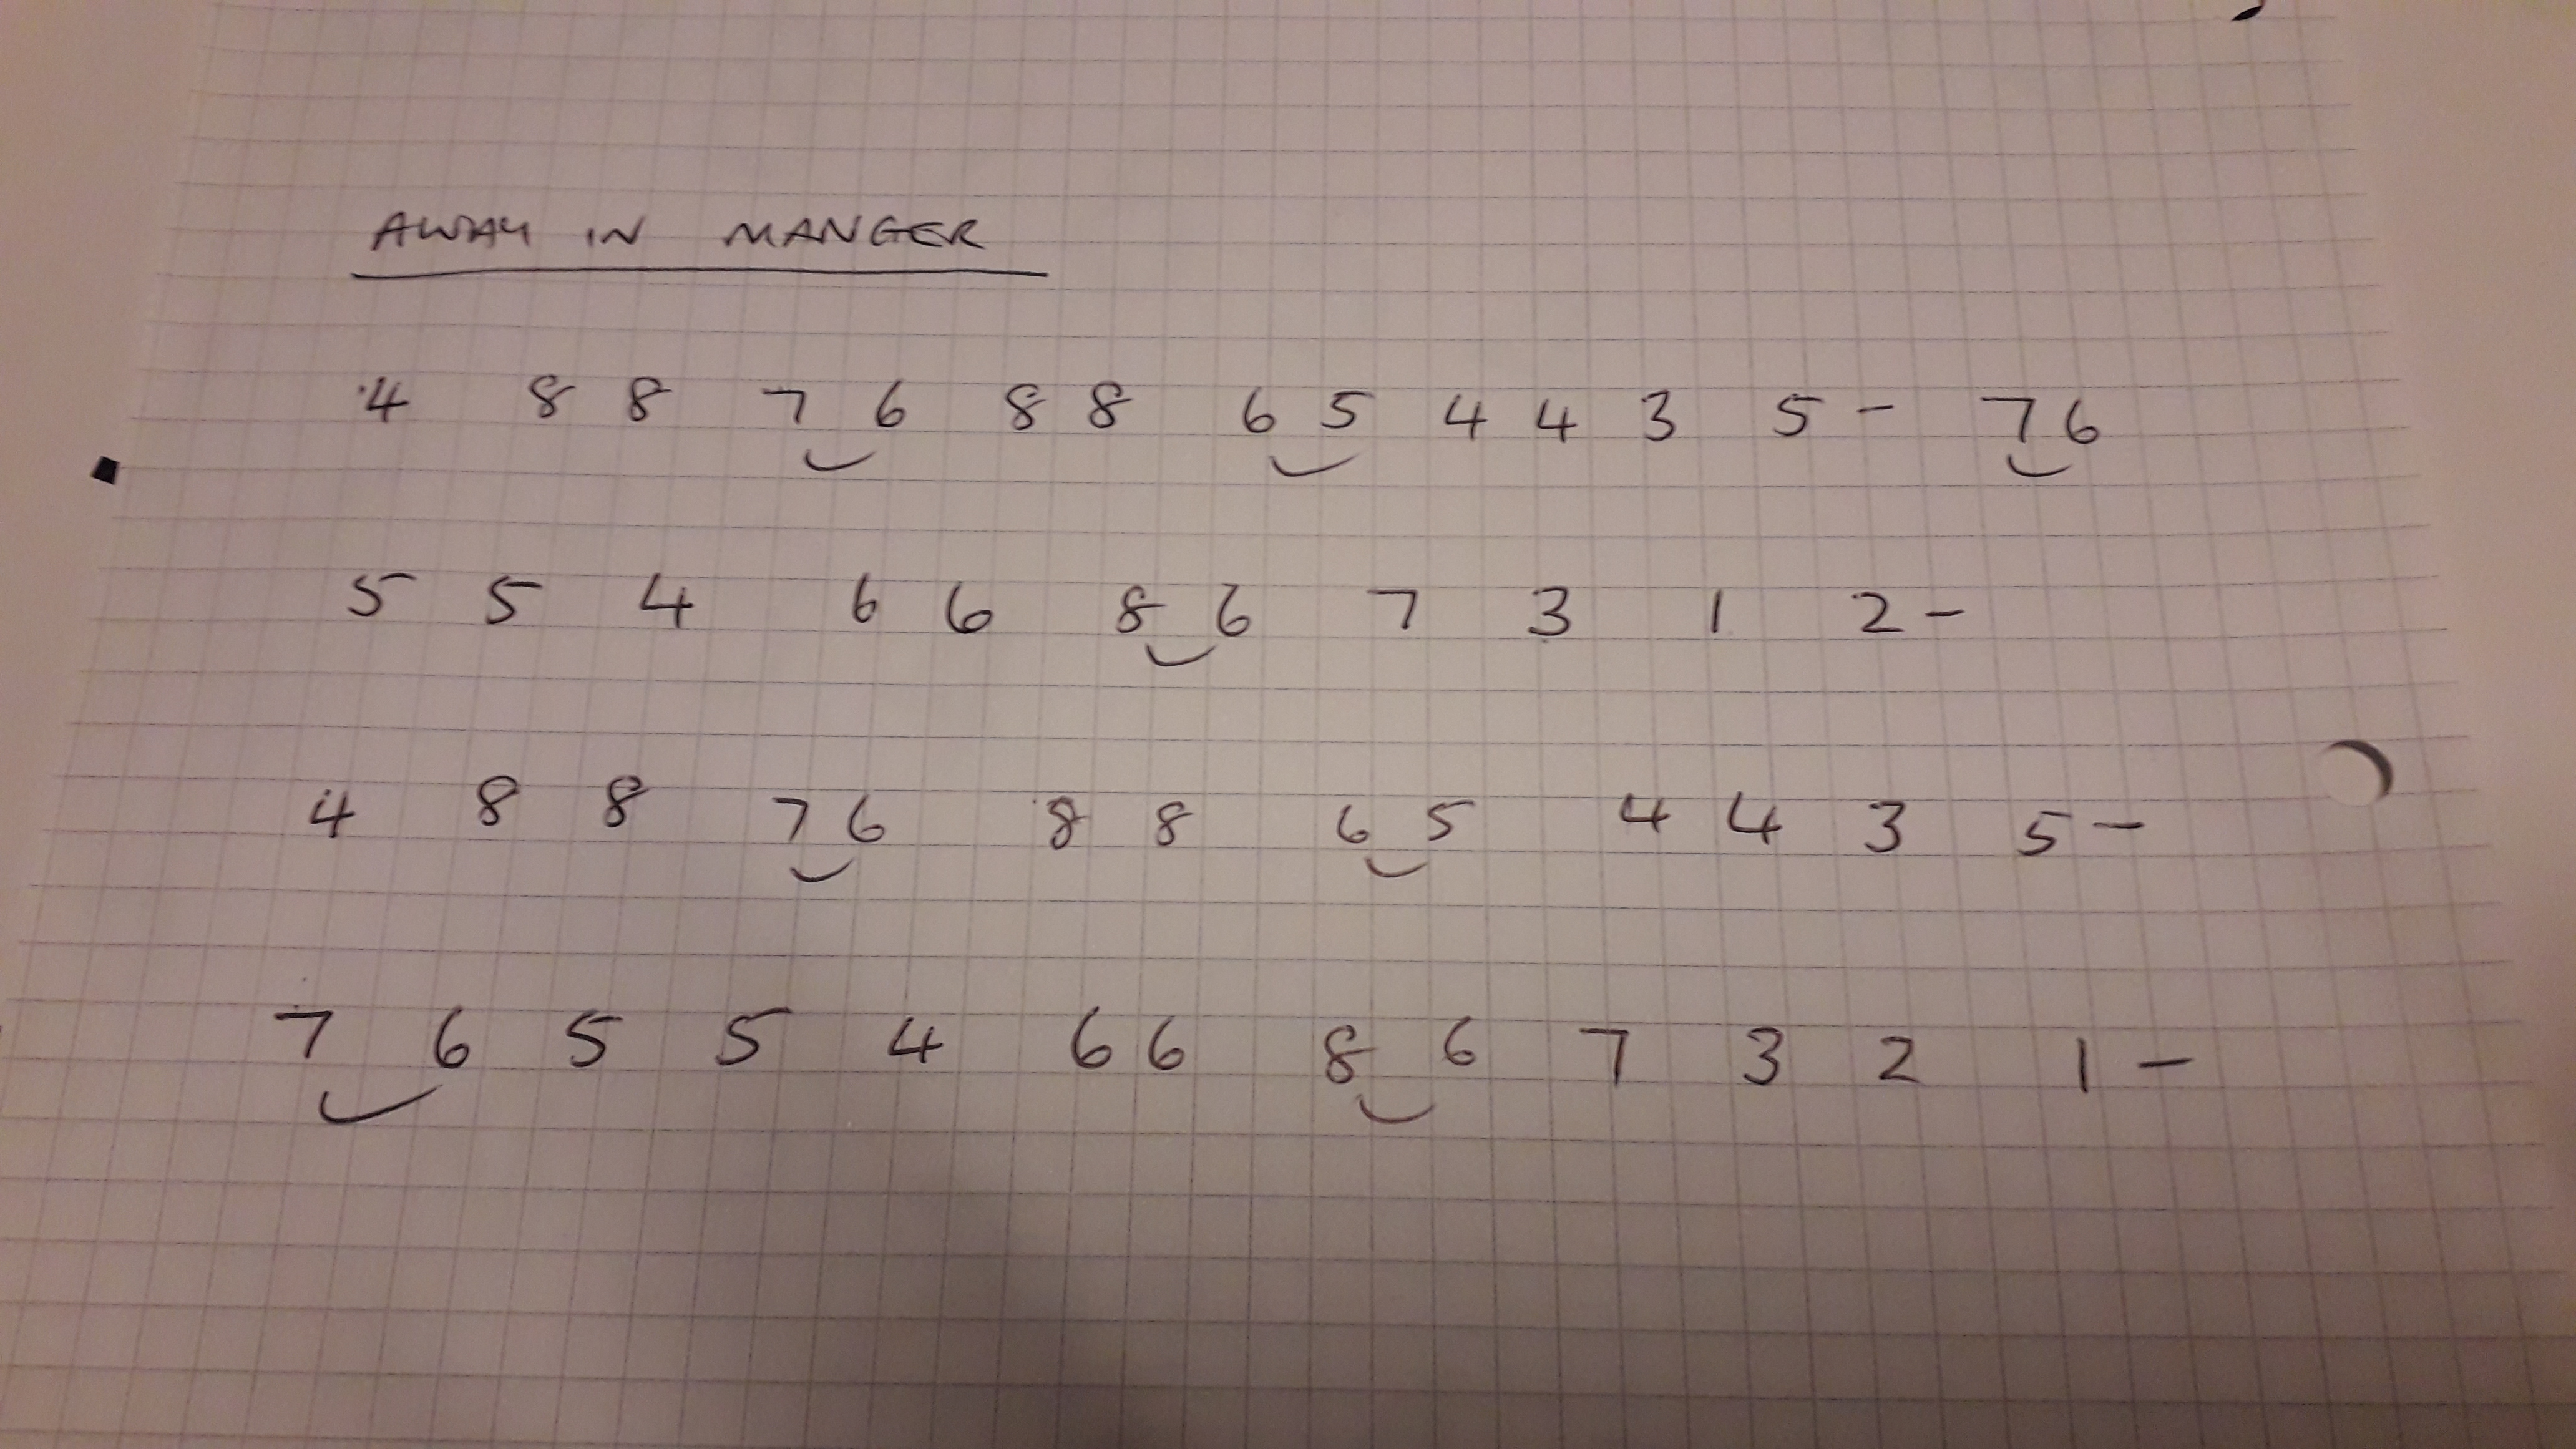 AWAY IN MANGER
4 8 8 7 6 8 8 6 5 4 4 3 5 - 7 6
5 5 4 6 6 8 6 7 3 1 2 -
4 8 8 7 6 8 8 6 5 4 4 3 5 -
7 6 5 5 4 6 6 8 6 7 3 2 1 -